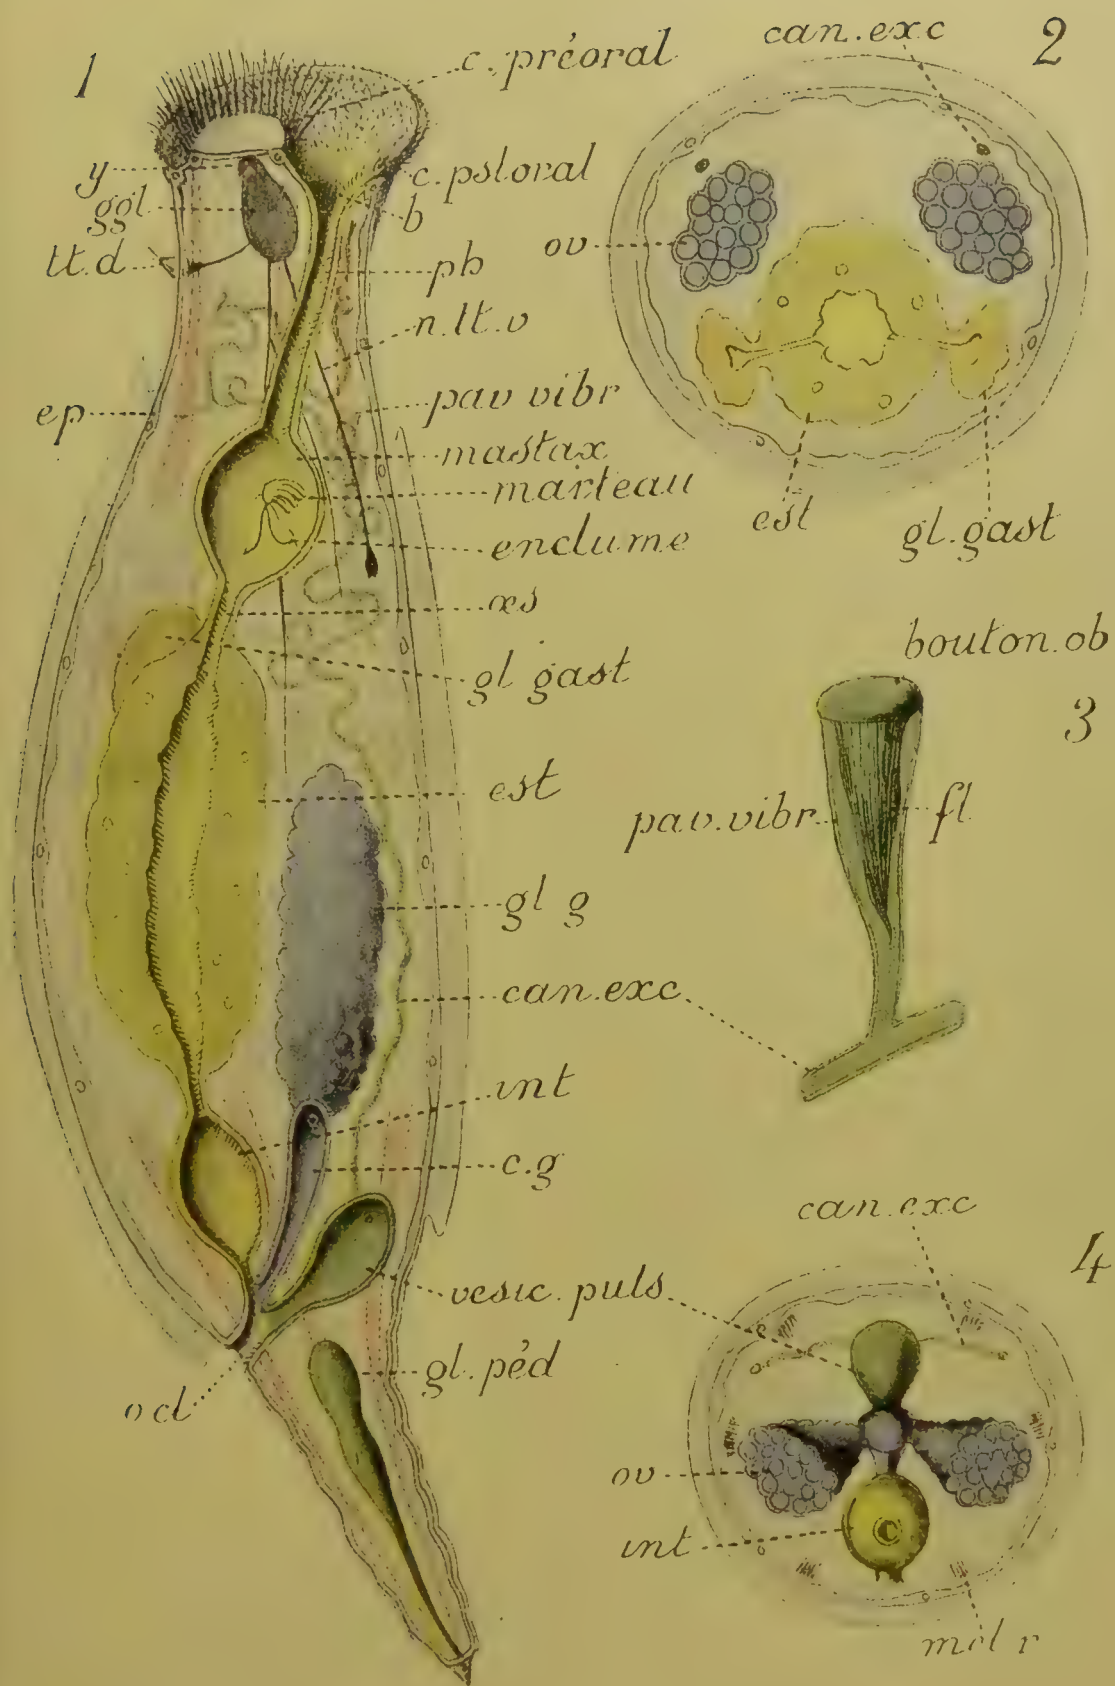 1
c. préoral
y
c. pstoral
ggl
b
tt.d
ph
n.tt.v
ep
pav vibr
mastax
marteau
enclume
œs
gl gast
est
gl g
can.exc
int
c.g
vesic. puls
gl. péd
o cl
2
can.exc
ov
est
gl.gast
bouton.ob
3
pav.vibr
fl
4
can.exc
ov
int
mcl r